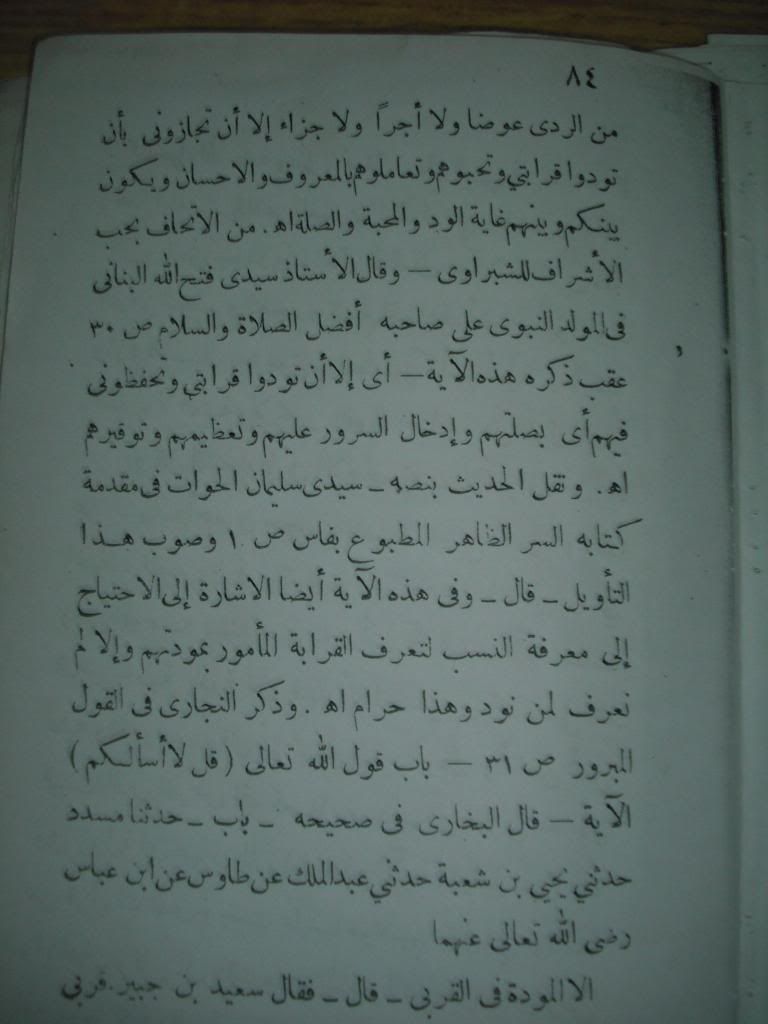 ٨٤
من الردى عوضا ولا أجراً ولا جزاء إلا أن تجازونى بأن
تودوا قرابتي وتحبوهم وتعاملوهم بالمعروف والاحسان ويكون
بينكم وبينهم غاية الود والمحبة والصلة اه. من الاتحاف بحب
الأشراف للشبراوى — وقال الأستاذ سيدى فتح الله البنانى
فى المولد النبوى على صاحبه أفضل الصلاة والسلام ص ٣٠
عقب ذكره هذه الآية — أى إلا أن تودوا قرابتي وتحفظونى
فيهم أى بصلتهم وإدخال السرور عليهم وتعظيمهم وتوقيرهم
اه. ونقل الحديث بنصه — سيدى سليمان الحوات فى مقدمة
كتابه السر الظاهر المطبوع بفاس ص ١ وصوب هذا
التأويل — قال — وفى هذه الآية أيضا الاشارة إلى الاحتياج
إلى معرفة النسب لتعرف القرابة المأمور بمودتهم وإلا لم
نعرف لمن نود وهذا حرام اه. وذكر النجارى فى القول
المبرور ص ٣١ — باب قول الله تعالى (قل لا أسألكم)
الآية — قال البخارى فى صحيحه — باب — حدثنا مسدد
حدثني يحيى بن شعبة حدثني عبد الملك عن طاوس عن ابن عباس
رضى الله تعالى عنهما
الا المودة فى القربى — قال — فقال سعيد بن جبير. قربى